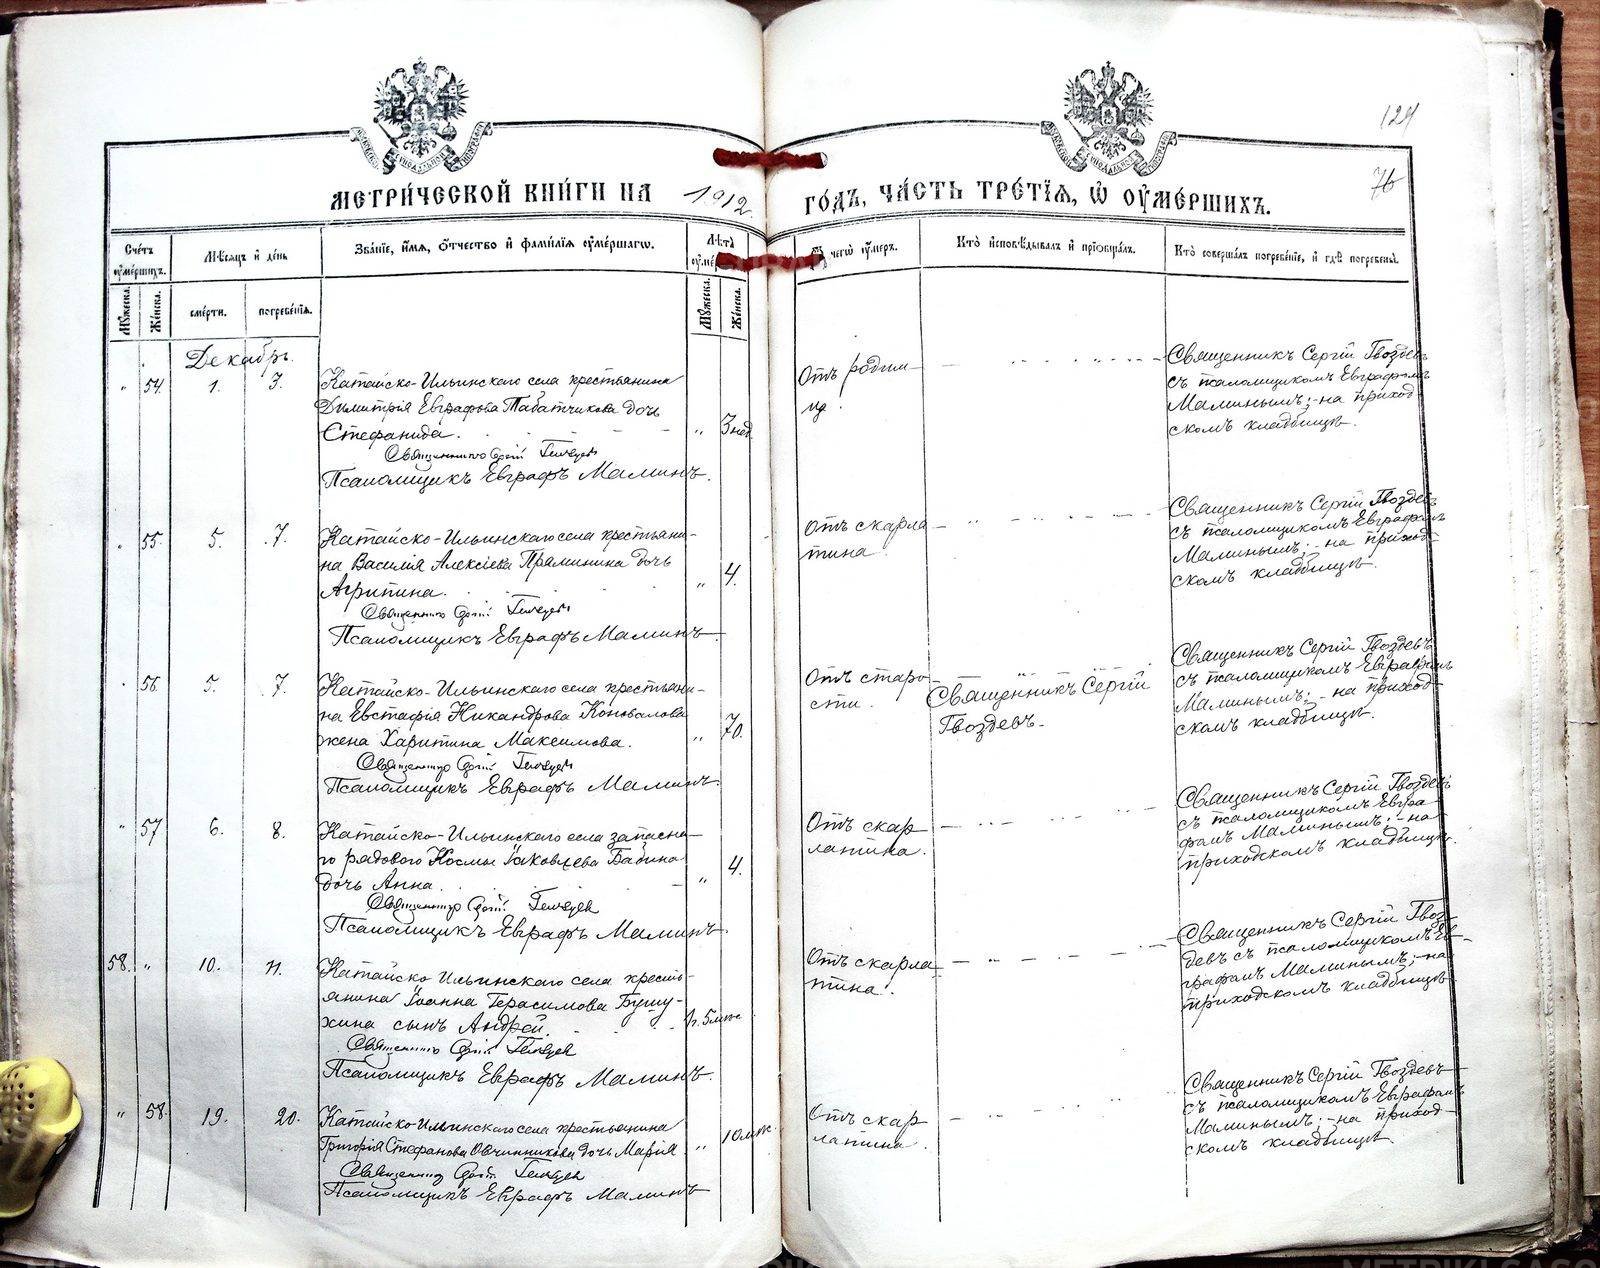 124
76
МЕТРИ́ЧЕСКОЙ КНИ́ГИ НА 1912 ГО́ДЪ, ЧА́СТЬ ТРЕ́ТІЯ, Ѽ ОУ҆МЕ́РШИХЪ.
Сче́тъ оу҆ме́ршихъ.
Мѣсяцъ и де́нь
Зва́ніе, и҆́мя, ѻ҆́тчество и фами́лія оу҆ме́ршагѡ.
Лѣта
чегѡ̀ оу҆́меръ.
Кто̀ и҆сповѣ́дывалъ и прїѡбща́лъ.
Кто̀ соверша́лъ погребе́ніе, и гдѣ̀ погребены̀.
Му́жеска.
Же́нска.
сме́рти.
погребе́нія.
Му́жеска.
Же́нска.
Декабрь.
" 54. 1. 3.
Катайско-Ильинскаго села крестьянина
Димитрія Евграфова Табатчикова дочь
Стефанида. " 3 нед
Священникъ Сергій Гвоздевъ
Псаломщикъ Евграфъ Маминъ.
Отъ родим-
ца.
Священникъ Сергій Гвоздевъ
съ псаломщикомъ Евграфомъ
Маминымъ; на приход-
скомъ кладбищѣ.
" 55. 5. 7.
Катайско-Ильинскаго села крестьяни-
на Василія Алексіева Пряминина дочь
Агрипина. " 4.
Священникъ Сергій Гвоздевъ
Псаломщикъ Евграфъ Маминъ.
Отъ скарла
тина.
Священникъ Сергій Гвоздевъ
съ псаломщикомъ Евграфомъ
Маминымъ; на приход-
скомъ кладбищѣ.
" 56. 5. 7.
Катайско-Ильинскаго села крестьяни-
на Евстафія Никандрова Коновалова
жена Харитина Максимова. " 70.
Священникъ Сергій Гвоздевъ
Псаломщикъ Евграфъ Маминъ.
Отъ старо-
сти.
Священникъ Сергій
Гвоздевъ.
Священникъ Сергій Гвоздевъ
съ псаломщикомъ Евграфомъ
Маминымъ; на приход-
скомъ кладбищѣ.
" 57 6. 8.
Катайско-Ильинскаго села запасна-
го рядового Космы Іаковлева Бабина
дочь Анна. " 4.
Священникъ Сергій Гвоздевъ
Псаломщикъ Евграфъ Маминъ.
Отъ скар
латина.
Священникъ Сергій Гвоздевъ
съ псаломщикомъ Евгра-
фомъ Маминымъ; на
приходскомъ кладбищѣ.
58. " 10. 11.
Катайско-Ильинскаго села кресть-
янина Іоанна Герасимова Бушу-
хина сынъ Андрей.
Священникъ Сергій Гвоздевъ
Псаломщикъ Евграфъ Маминъ.
Отъ скарла
тина.
Священникъ Сергій Гвоз-
девъ съ псаломщикомъ Ев-
графомъ Маминымъ; на
приходскомъ кладбищѣ.
" 58. 19. 20.
Катайско-Ильинскаго села крестьянина
Григорія Стефанова Овчинникова дочь Марія " 10 мѣс.
Священникъ Сергій Гвоздевъ
Псаломщикъ Евграфъ Маминъ
Отъ скар
латина.
Священникъ Сергій Гвоздевъ
съ псаломщикомъ Евграфомъ
Маминымъ; на приход-
скомъ кладбищѣ